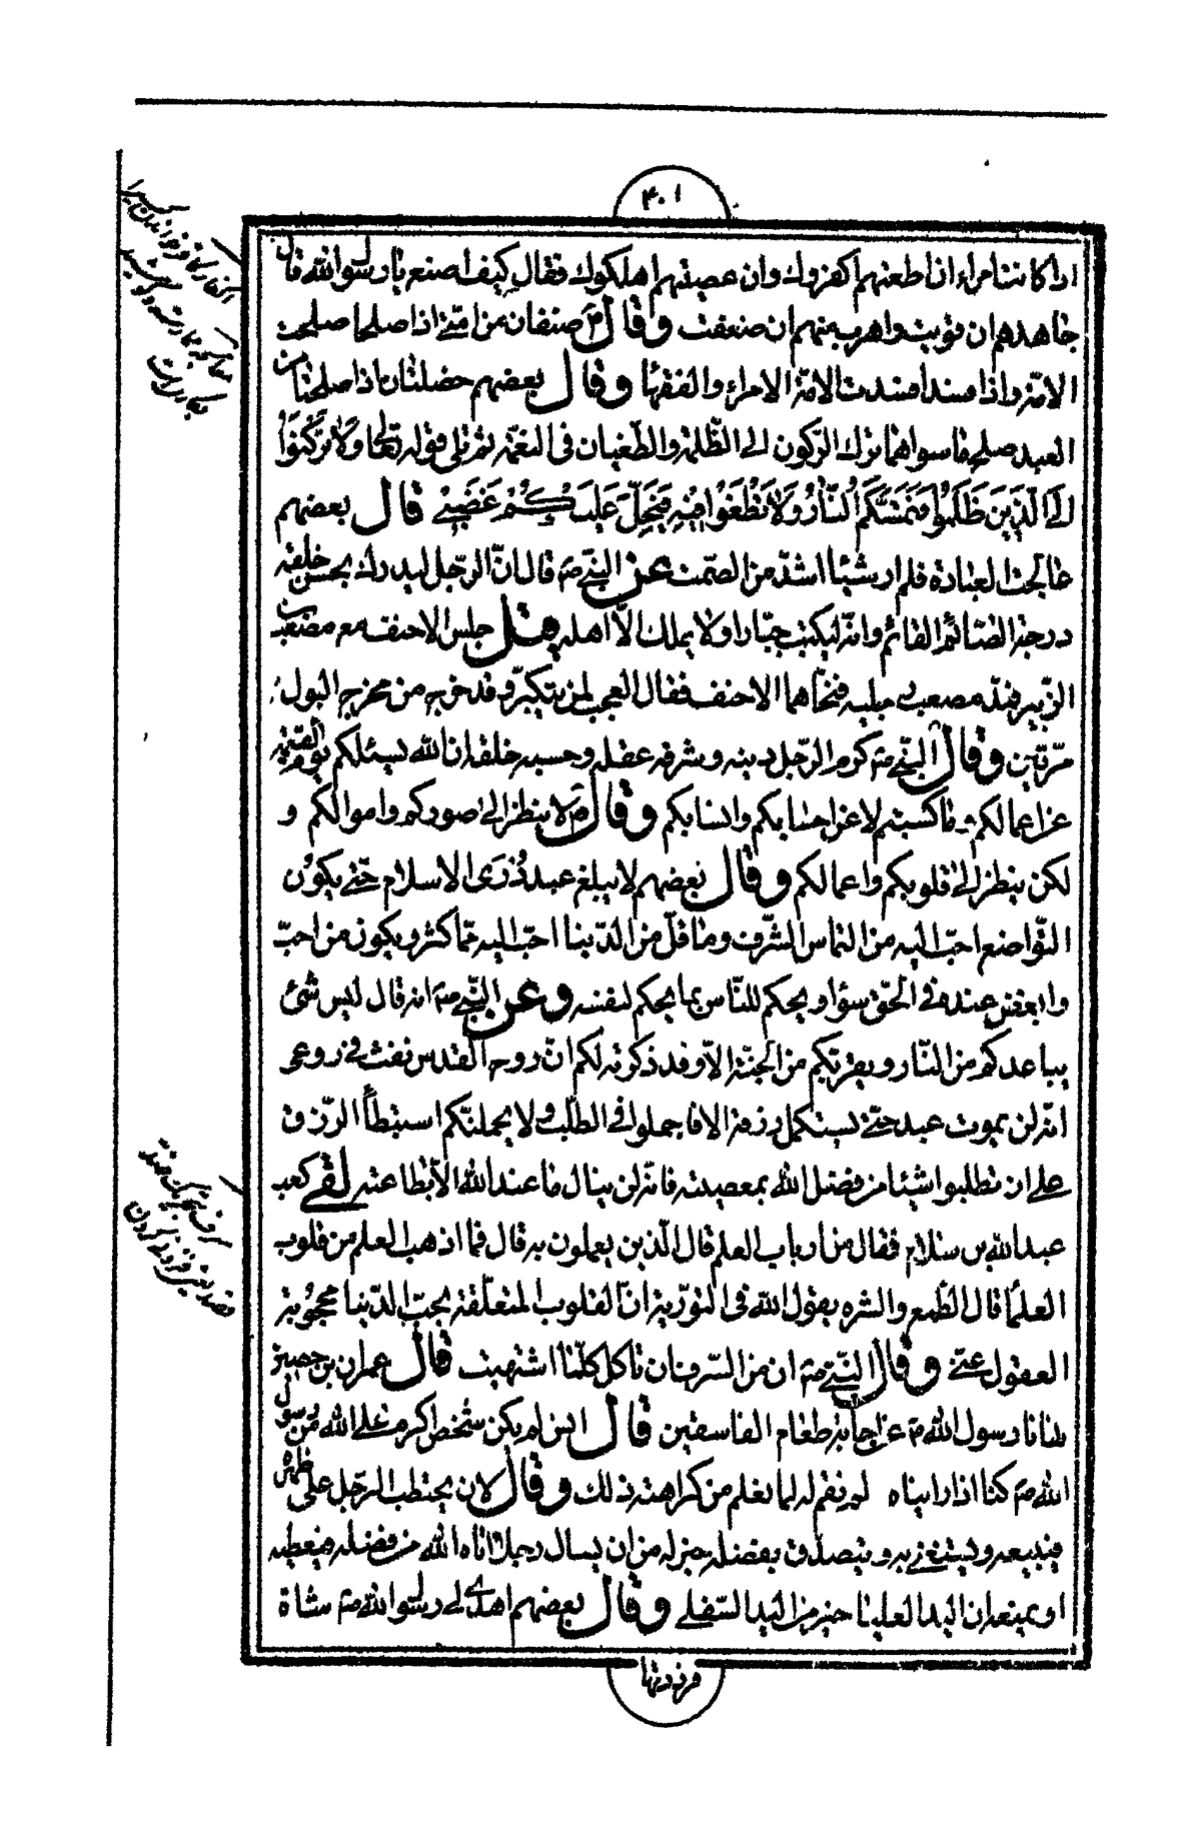 ۴۰۱
اذا كانت امراء ان اطعتهم اكفروك وان عصيتهم اهلكوك فقال كيف اصنع يا رسول الله قال
جاهدهم ان قويت واهرب منهم ان ضعفت وقال ص صنفان من امتى اذا صلحا صلحت
الامة واذا فسدا فسدت الامة الامراء والفقها وقال بعضهم خصلتان اذا صلحتا من
العبد صلح ما سواهما ترك الركون الى الظلمة والطغيان فى النعمة ثم تلى قوله تعالى وَلا تَرْكَنُوا
اِلَى الَّذينَ ظَلَمُوا فَتَمَسَّكُمُ النّارُ وَلا تَطْغَوْا فيهِ فَيَحِلَّ عَلَيْكُمْ غَضَبي قال بعضهم
عالجت العبادة فلم ار شيئا اشدّ من الصّمت عن النبىّ ص قال انّ الرّجل ليدرك بحسن خلقه
درجة الصّائم القائم وانه ليكتب جبّارا ولا يملك الّا اهله قيل جلس الاحنف مع مصعب
الزّبير فمدّ مصعب رجليه فنحّاهما الاحنف فقال العجب لمن يتكبّر وقد خرج من مخرج البول
مرّتين وقال النبىّ ص كرم الرّجل دينه وشرفه عقله وحسبه خلقه ان الله يسئلكم يوم القيمة
عن اعمالكم وما كسبتم لا عن احسابكم وانسابكم وقال ص لا ينظر الى صوركم واموالكم و
لكن ينظر الى قلوبكم واعمالكم وقال بعضهم لا يبلغ عبد ذرى الاسلام حتّى يكون
التّواضع احبّ اليه من التماس الشّرف وما قلّ من الدّنيا احبّ اليه ممّا كثر ويكون من احبّ
وابغض عنده فى الحقّ سواء ويحكم للنّاس بما يحكم لنفسه وعن النبىّ ص انه قال ليس شئ
يباعدكم من النّار ويقرّبكم من الجنّة الّا وقد ذكرته لكم انّ روح القدس نفث فى روعى
انّه لن يموت عبد حتّى يستكمل رزقه الا فاجملوا فى الطّلب ولا يحملنّكم استبطأ الرّزق
على ان تطلبوا شيئا من فضل الله بمعصيته فانّه لن ينال ما عند الله الّا بطاعته لقى كعب
عبد الله بن سلام فقال من ارباب العلم قال الّذين يعملون به قال فما اذهب العلم من قلوب
العلمأ قال الطّمع والشره يقول الله فى التّورية انّ القلوب المتعلّقة بحبّ الدّنيا محجوبة
العقول عنّى وقال النبىّ ص ان من السّرف ان تاكل كلّما اشتهيت قال عمران بن حصين
نهانا رسول الله ص عن اجابة طعام الفاسقين قال انس لم يكن شخص اكرم على الله من رسول
الله ص كنا اذا رايناه لم نقم له لما نعلم من كراهته ذلك وقال لان يحتطب الرّجل على ظهره
فيبيعه ويستغنى به ويتصدّق بفضله خير له من ان يسال رجلا اتاه الله من فضله فيعطيه
او يمنعه ان اليد العليا خير من اليد السّفلى وقال بعضهم اهدى لى رسول الله ص شاة